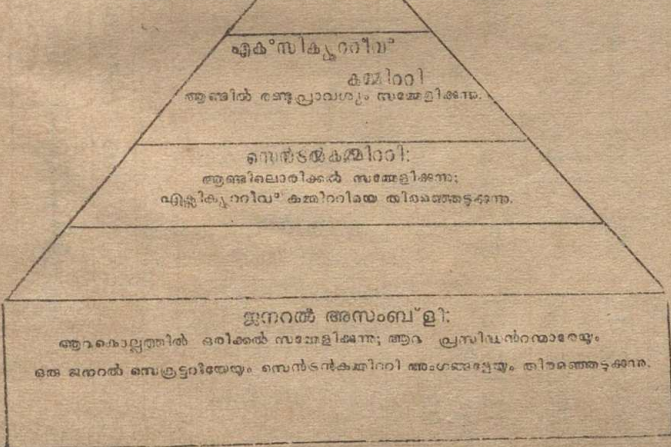 എക്സിക്യൂററീവ്
കമ്മിററി
ആണ്ടിൽ രണ്ടുപ്രാവശ്യം സമ്മേളിക്കുന്നു.
സെൻട്രൽകമ്മിററി:
ആണ്ടിലൊരിക്കൽ സമ്മേളിക്കുന്നു;
എക്സിക്യൂററീവ് കമ്മിററിയെ തിരഞ്ഞെടുക്കുന്നു.
ജനറൽ അസംബ്ളി:
ആറുകൊല്ലത്തിൽ ഒരിക്കൽ സമ്മേളിക്കുന്നു; ആറു പ്രസിഡൻറന്മാരേയും
ഒരു ജനറൽ സെക്രട്ടറിയേയും സെൻട്രൽകമ്മിററി അംഗങ്ങളേയും തിരഞ്ഞെടുക്കുന്നു.